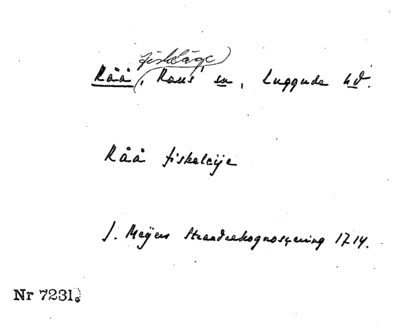 fiskläge
Råå, Raus sn, Luggude hd.
Råå fiskeleije
J. Meijers Strandrekognoscering 1714.
Nr 7231.